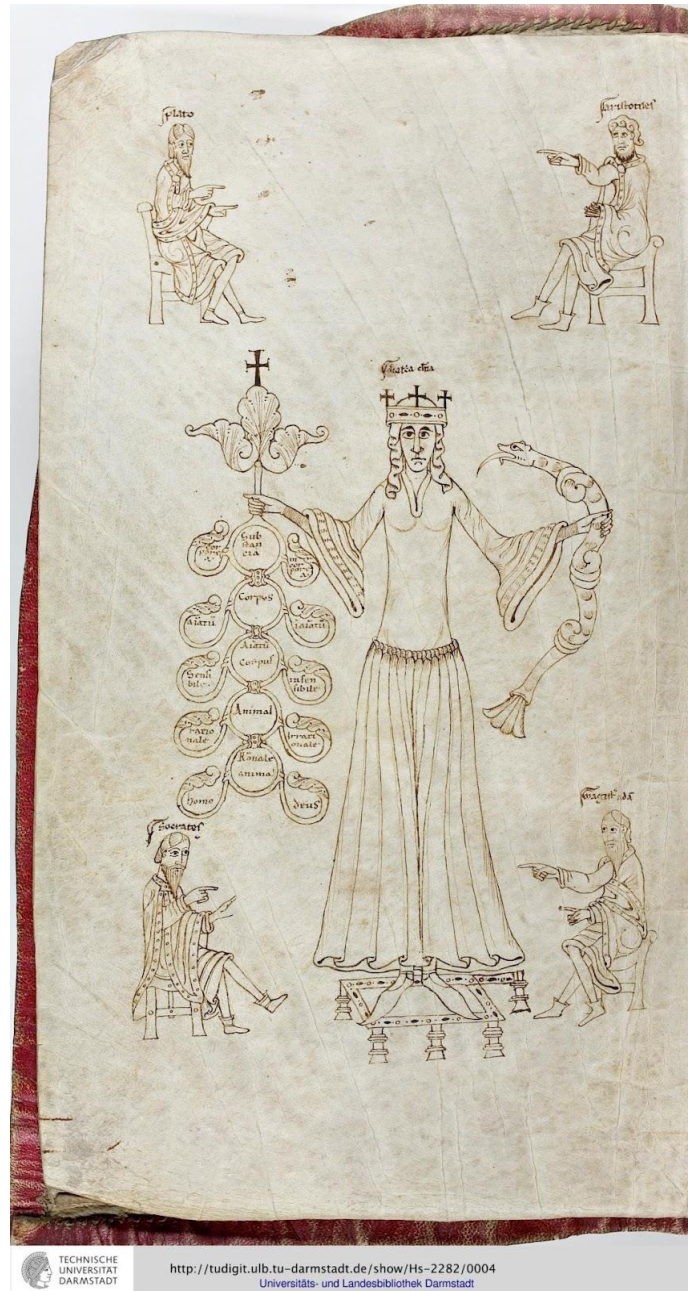 plato
aristotiles
Sub
stan
cia
cor
porea
in
cor
porea
Corpus
aiatū
iaiatū
Aiatū
corpus
Sensi
bile
insen
sibile
Animal
ratio
nale
Irrati
onale
Rōnale
animal
homo
deus
socrates
TECHNISCHE
UNIVERSITÄT
DARMSTADT
http://tudigit.ulb.tu-darmstadt.de/show/Hs-2282/0004
Universitäts- und Landesbibliothek Darmstadt